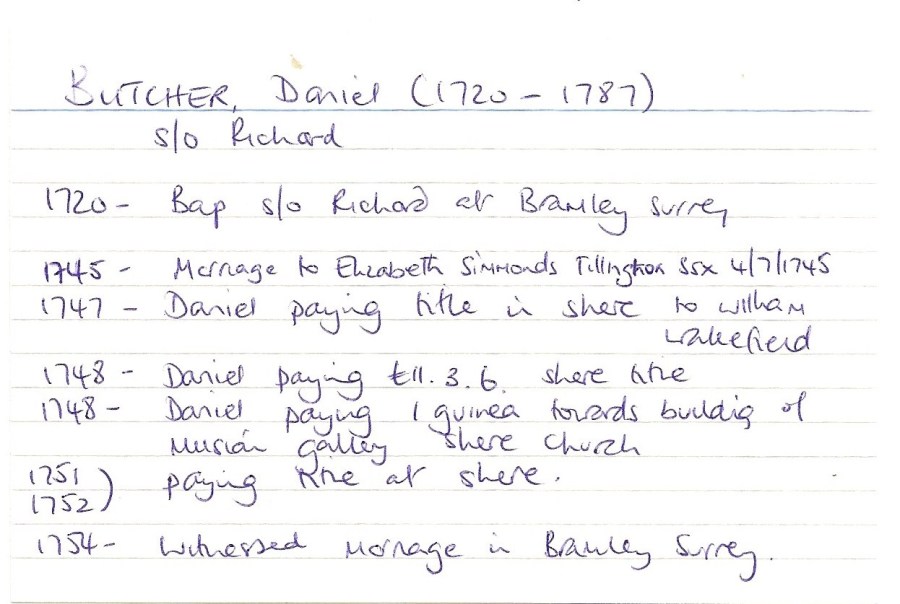 BUTCHER, Daniel (1720 - 1787)
s/o Richard
1720 - Bap s/o Richard at Bramley Surrey
1745 - Marriage to Elizabeth Simmonds Tillington SSX 4/7/1745
1747 - Daniel paying tithe in Shere to William
Wakefield
1748 - Daniel paying £11. 3. 6. Shere tithe
1748 - Daniel paying 1 guinea towards buildig of
Musian galley Shere Church
1751
1752) paying tithe at Shere.
1754 - Witnessed Marriage in Bramley Surrey.